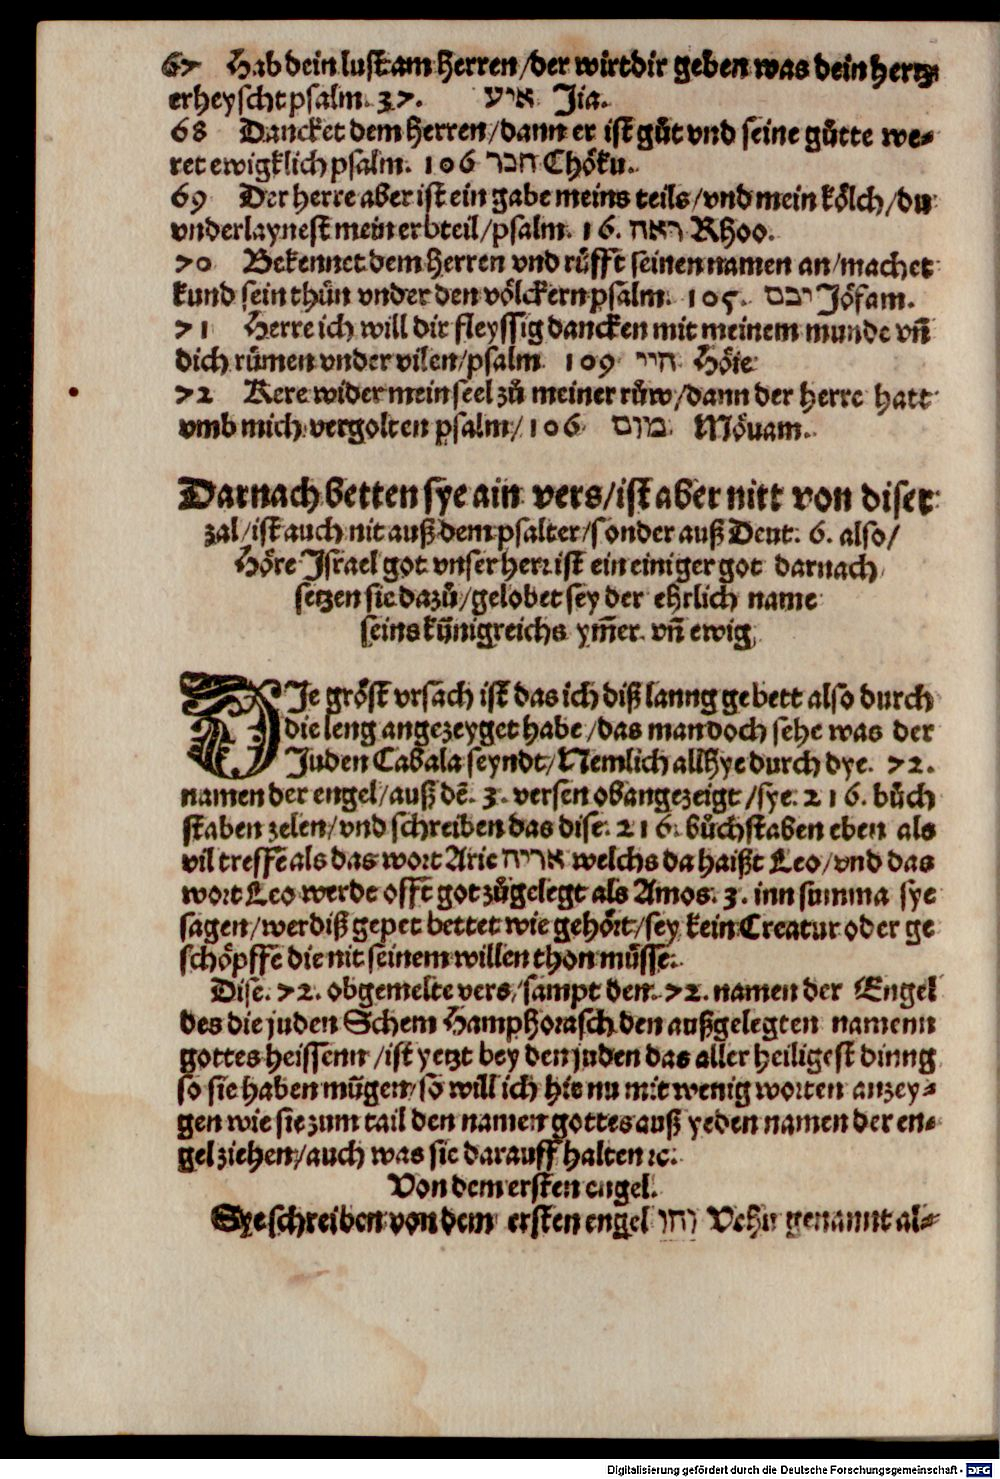 67 Hab dein lust am Herren/der wirt dir geben was dein hertz
erheyscht psalm. 37. איע Jia.
68 Dancket dem Herren/dann er ist gůt vnd seine gůtte we⸗
ret ewigklich psalm. 106 חבו Chöku.
69 Der herre aber ist ein gabe meins teils/vnd mein kölch/du
vnderlaynest mein erbteil/psalm. 16. ראה Rhoo.
70 Bekennet dem Herren vnd růfft seinen namen an/machet
kund sein thůn vnder den völckern psalm. 105. יבם Jöfam.
71 Herre ich will dir fleyssig dancken mit meinem munde vñ
dich růmen vnder vilen/psalm 109 היי Höie
72 Kere wider mein seel zů meiner růw/dann der herre hatt
vmb mich vergolten psalm/106 מום Möuam.
Darnach betten sye ain vers/ist aber nitt von diser
zal/ist auch nit auß dem psalter/sonder auß Deut. 6. also/
Höre Israel got vnser herr ist ein einiger got darnach
setzen sie dazů/gelobet sey der ehrlich name
seins künigreichs ym̃er vñ ewig.
DJe gröst vrsach ist das ich diß lanng gebett also durch
die leng angezeyget habe/das man doch sehe was der
Juden Cabala seyndt/Nemlich allhye durch dye. 72.
namen der engel/auß dẽ. 3. versen obangezeigt/sye. 216. bůch
staben zelen/vnd schreiben das dise. 216. bůchstaben eben als
vil treffẽ als das wort Arie אריה welchs da haißt Leo/vnd das
wort Leo werde offt got zůgelegt als Amos. 3. inn summa sye
sagen/wer diß gepet bettet wie gehört/sey kein Creatur oder ge
schöpffe die nit seinem willen thon müsse.
Dise. 72. obgemelte vers/sampt dem. 72. namen der Engel
des die juden Schem Hamphorasch den außgelegten namenn
gottes heissenn/ist yetzt bey den juden das aller heiligest dinng
so sie haben mügen/so will ich hie nu mit wenig worten anzey⸗
gen wie sie zum tail den namen gottes auß yeden namen der en⸗
gel ziehen/auch was sie darauff halten ꝛc.
Von dem ersten engel.
Sye schreiben von dem ersten engel והו Vehu genannt al⸗
Digitalisierung gefördert durch die Deutsche Forschungsgemeinschaft - DFG